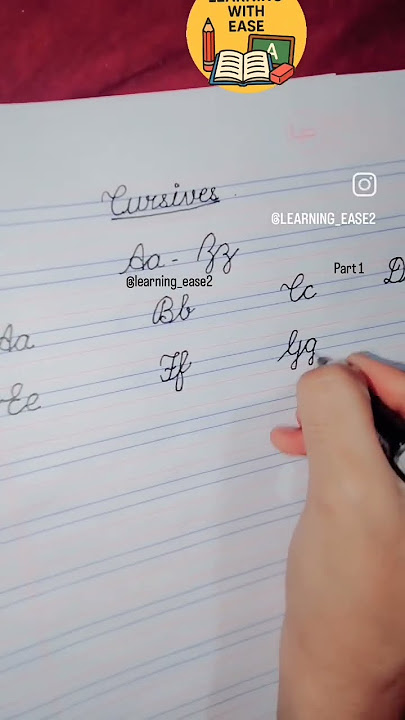 LEARNING
WITH
EASE
Cursives
@LEARNING_EASE2
Aa - Zz
@learning_ease2
Part 1
Aa Bb Cc D
Ee Ff Gg